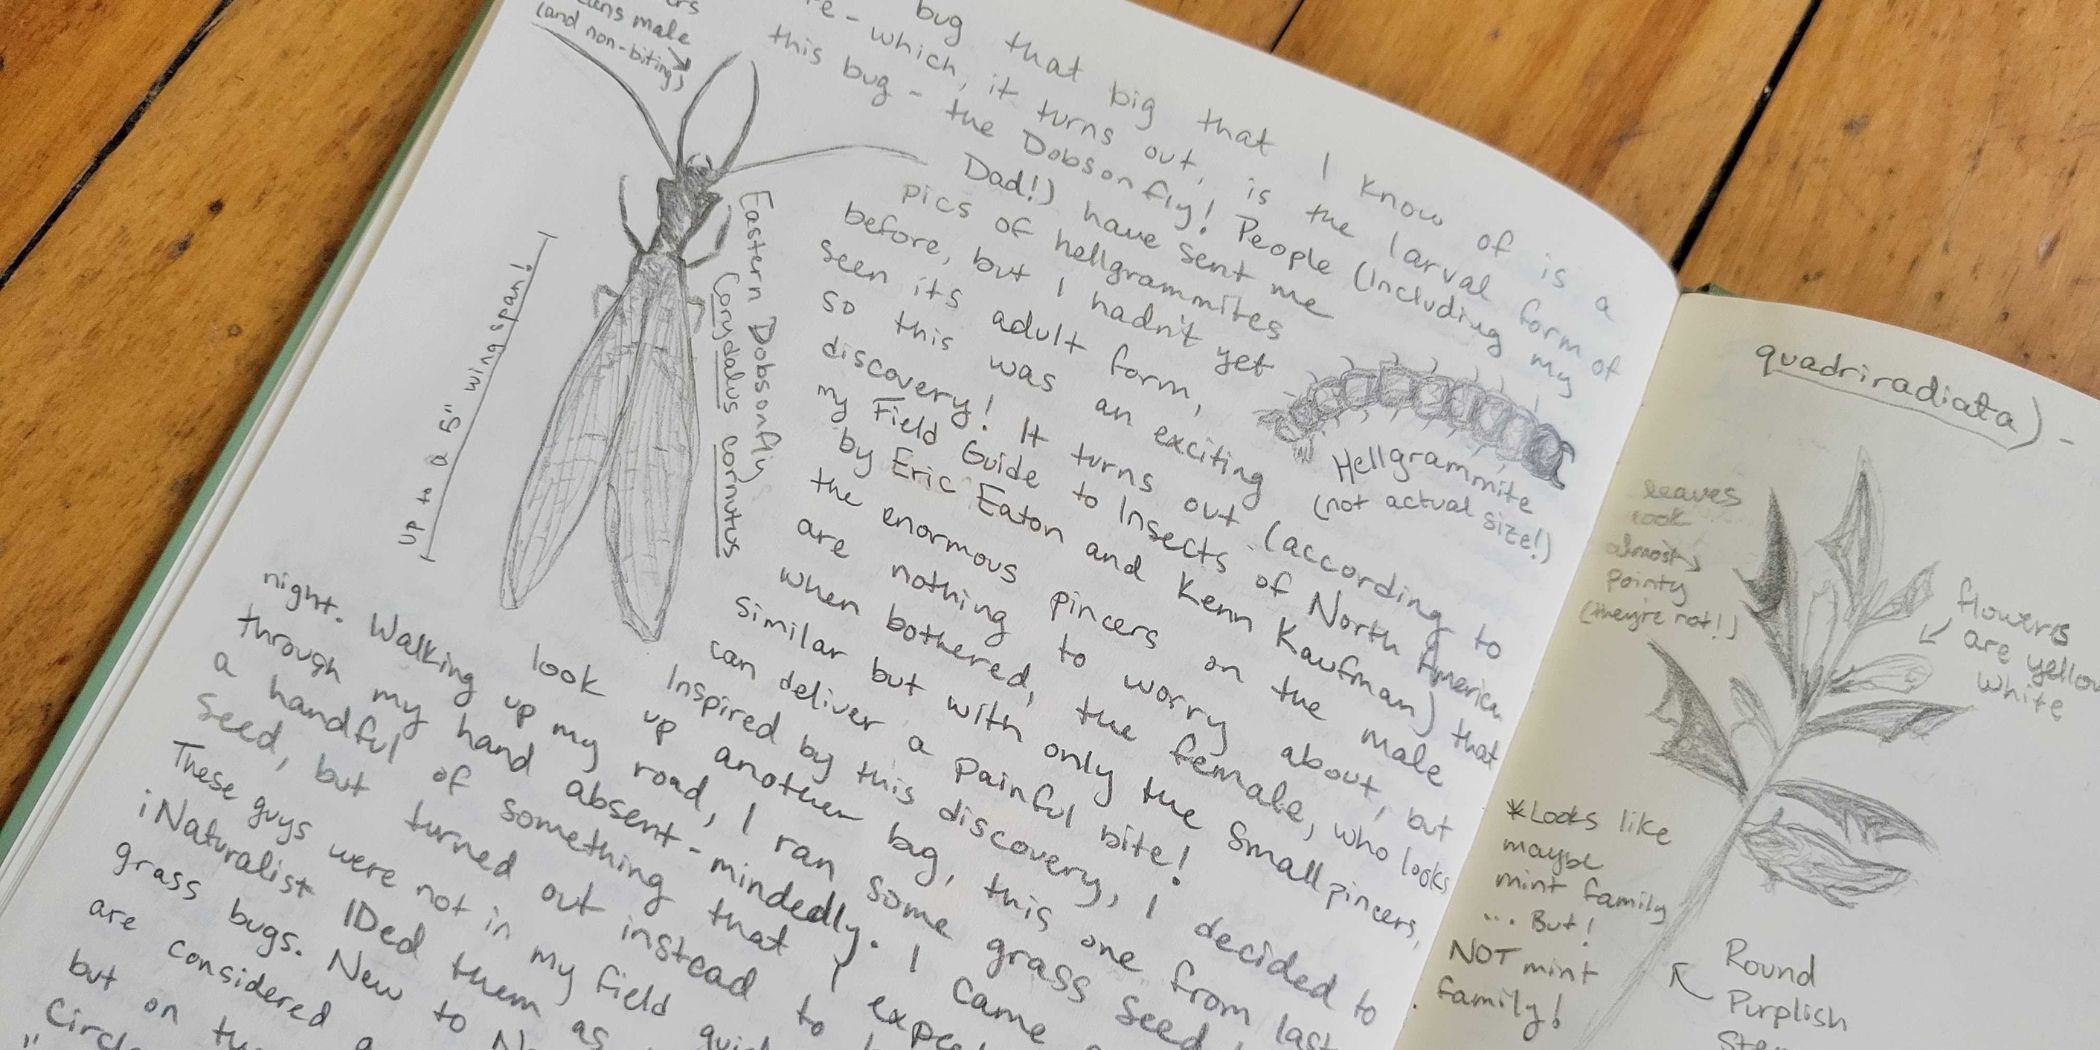 ers
ans male
(and non-biting)
bug that big that I know of is a
re - which, it turns out, is the larval form of
this bug - the Dobsonfly! People (including my
Dad!) have sent me
pics of hellgrammites
before, but I hadn't yet
seen its adult form,
so this was an exciting
discovery! It turns out (according to
my Field Guide to Insects of North America
by Eric Eaton and Kenn Kaufman) that
the enormous pincers on the male
are nothing to worry about, but
when bothered, the female, who looks
similar but with only the small pincers,
can deliver a painful bite!
Inspired by this discovery, I decided to
look up another bug, this one from last
night. Walking up my road, I ran some grass seed
through my hand absent-mindedly. I came
a handful of something that I expe
seed, but turned out instead to
These guys were not in my field guid
iNaturalist IDed them as
grass bugs. New to N
are considered a
but on the
"Circl
Eastern Dobsonfly
Corydalus cornutus
up to a 5" wingspan!
Hellgrammite
(not actual size!)
quadriradiata) -
leaves
look
almost
pointy
(they're not!)
flowers
are yellow
white
*Looks like
maybe
mint family
... But!
NOT mint
family!
Round
Purplish
Stem